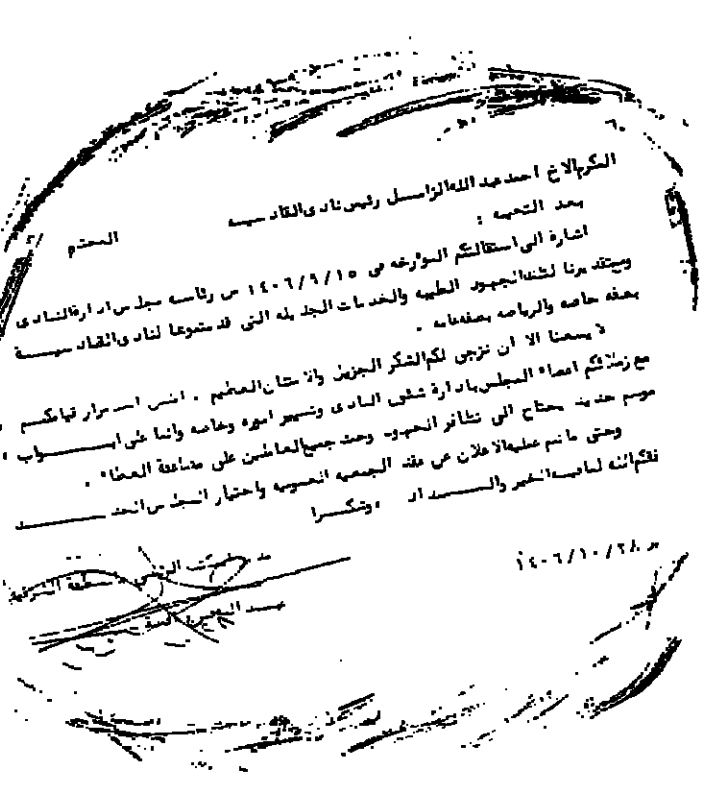 المكرم الاخ احمد عبد الله الزامـــل رئيس نادى القادسيـــه المحترم
بعد التحيـه :
اشارة الى استقالتكم المؤرخه فى ١٤٠٦/٩/١٥ من رئاسه مجلس ادارة النـــادى
وبتقديرنا لتلك الجهود الطيبه والخدمات الجليله التى قدمتموها لنادى القادسيــــة
بصفه خاصه والرياضه بصفه عامه .
لا يسعنا الا ان نزجى لكم الشكر الجزيل والامتنان العظيم . استمرار قيامكـــم
مع زملائكم اعضاء المجلس بادارة شئون النادى وتسيير اموره وخاصه واننا على ابـــواب
موسم جديد يحتاج الى تظافر الجهود وحث جميع العاملين على مضاعفة العطاء .
وحتى ما يتم عليه الاعلان عن عقد الجمعيه العموميه واختيار المجلس الجديـــد
وفقكم الله لما فيه الخير والســــداد ،وشكـــرا
١٤٠٦/١٠/٢٨
مدير مكتب الرئيس بمنطقة الشرقية